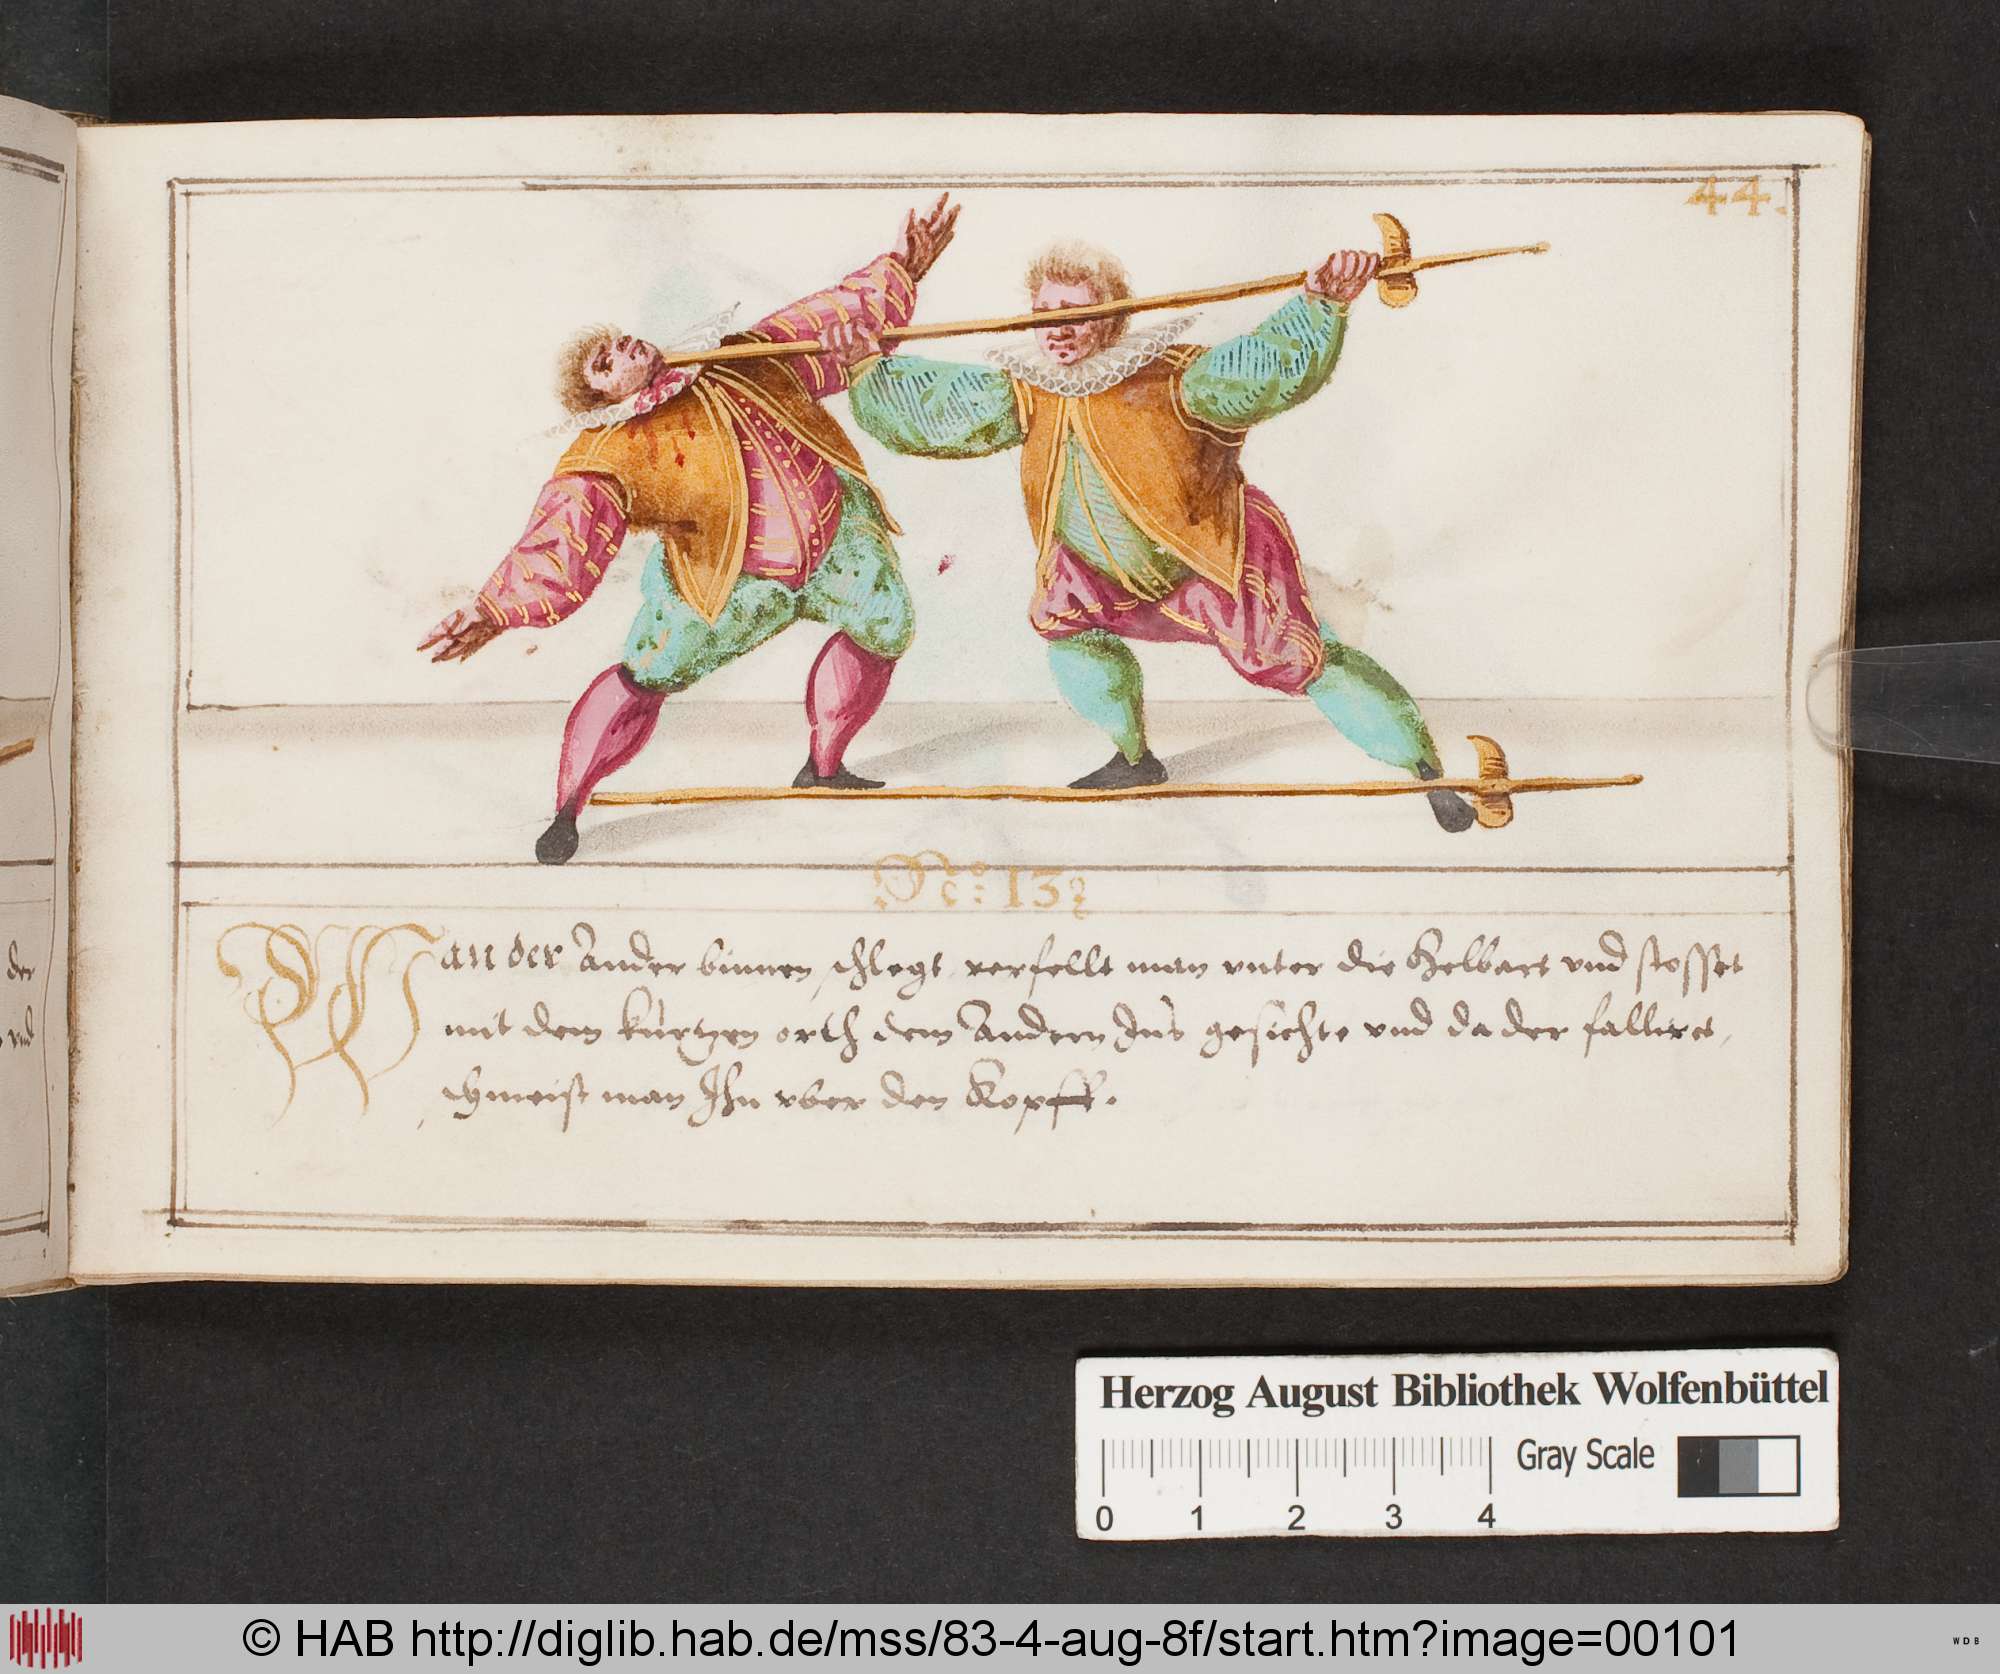 44.
No: 13
Wan der Ander binnen schlegt verfellt man vnter die Helbart vnd stosset
mit dem kurtzen orth dem Andern Ins gesichte vnd da der falliret,
schmeist man Ihn vber den Kopff.
der
vnd
Herzog August Bibliothek Wolfenbüttel
Gray Scale
0 1 2 3 4
© HAB http://diglib.hab.de/mss/83-4-aug-8f/start.htm?image=00101
WDB